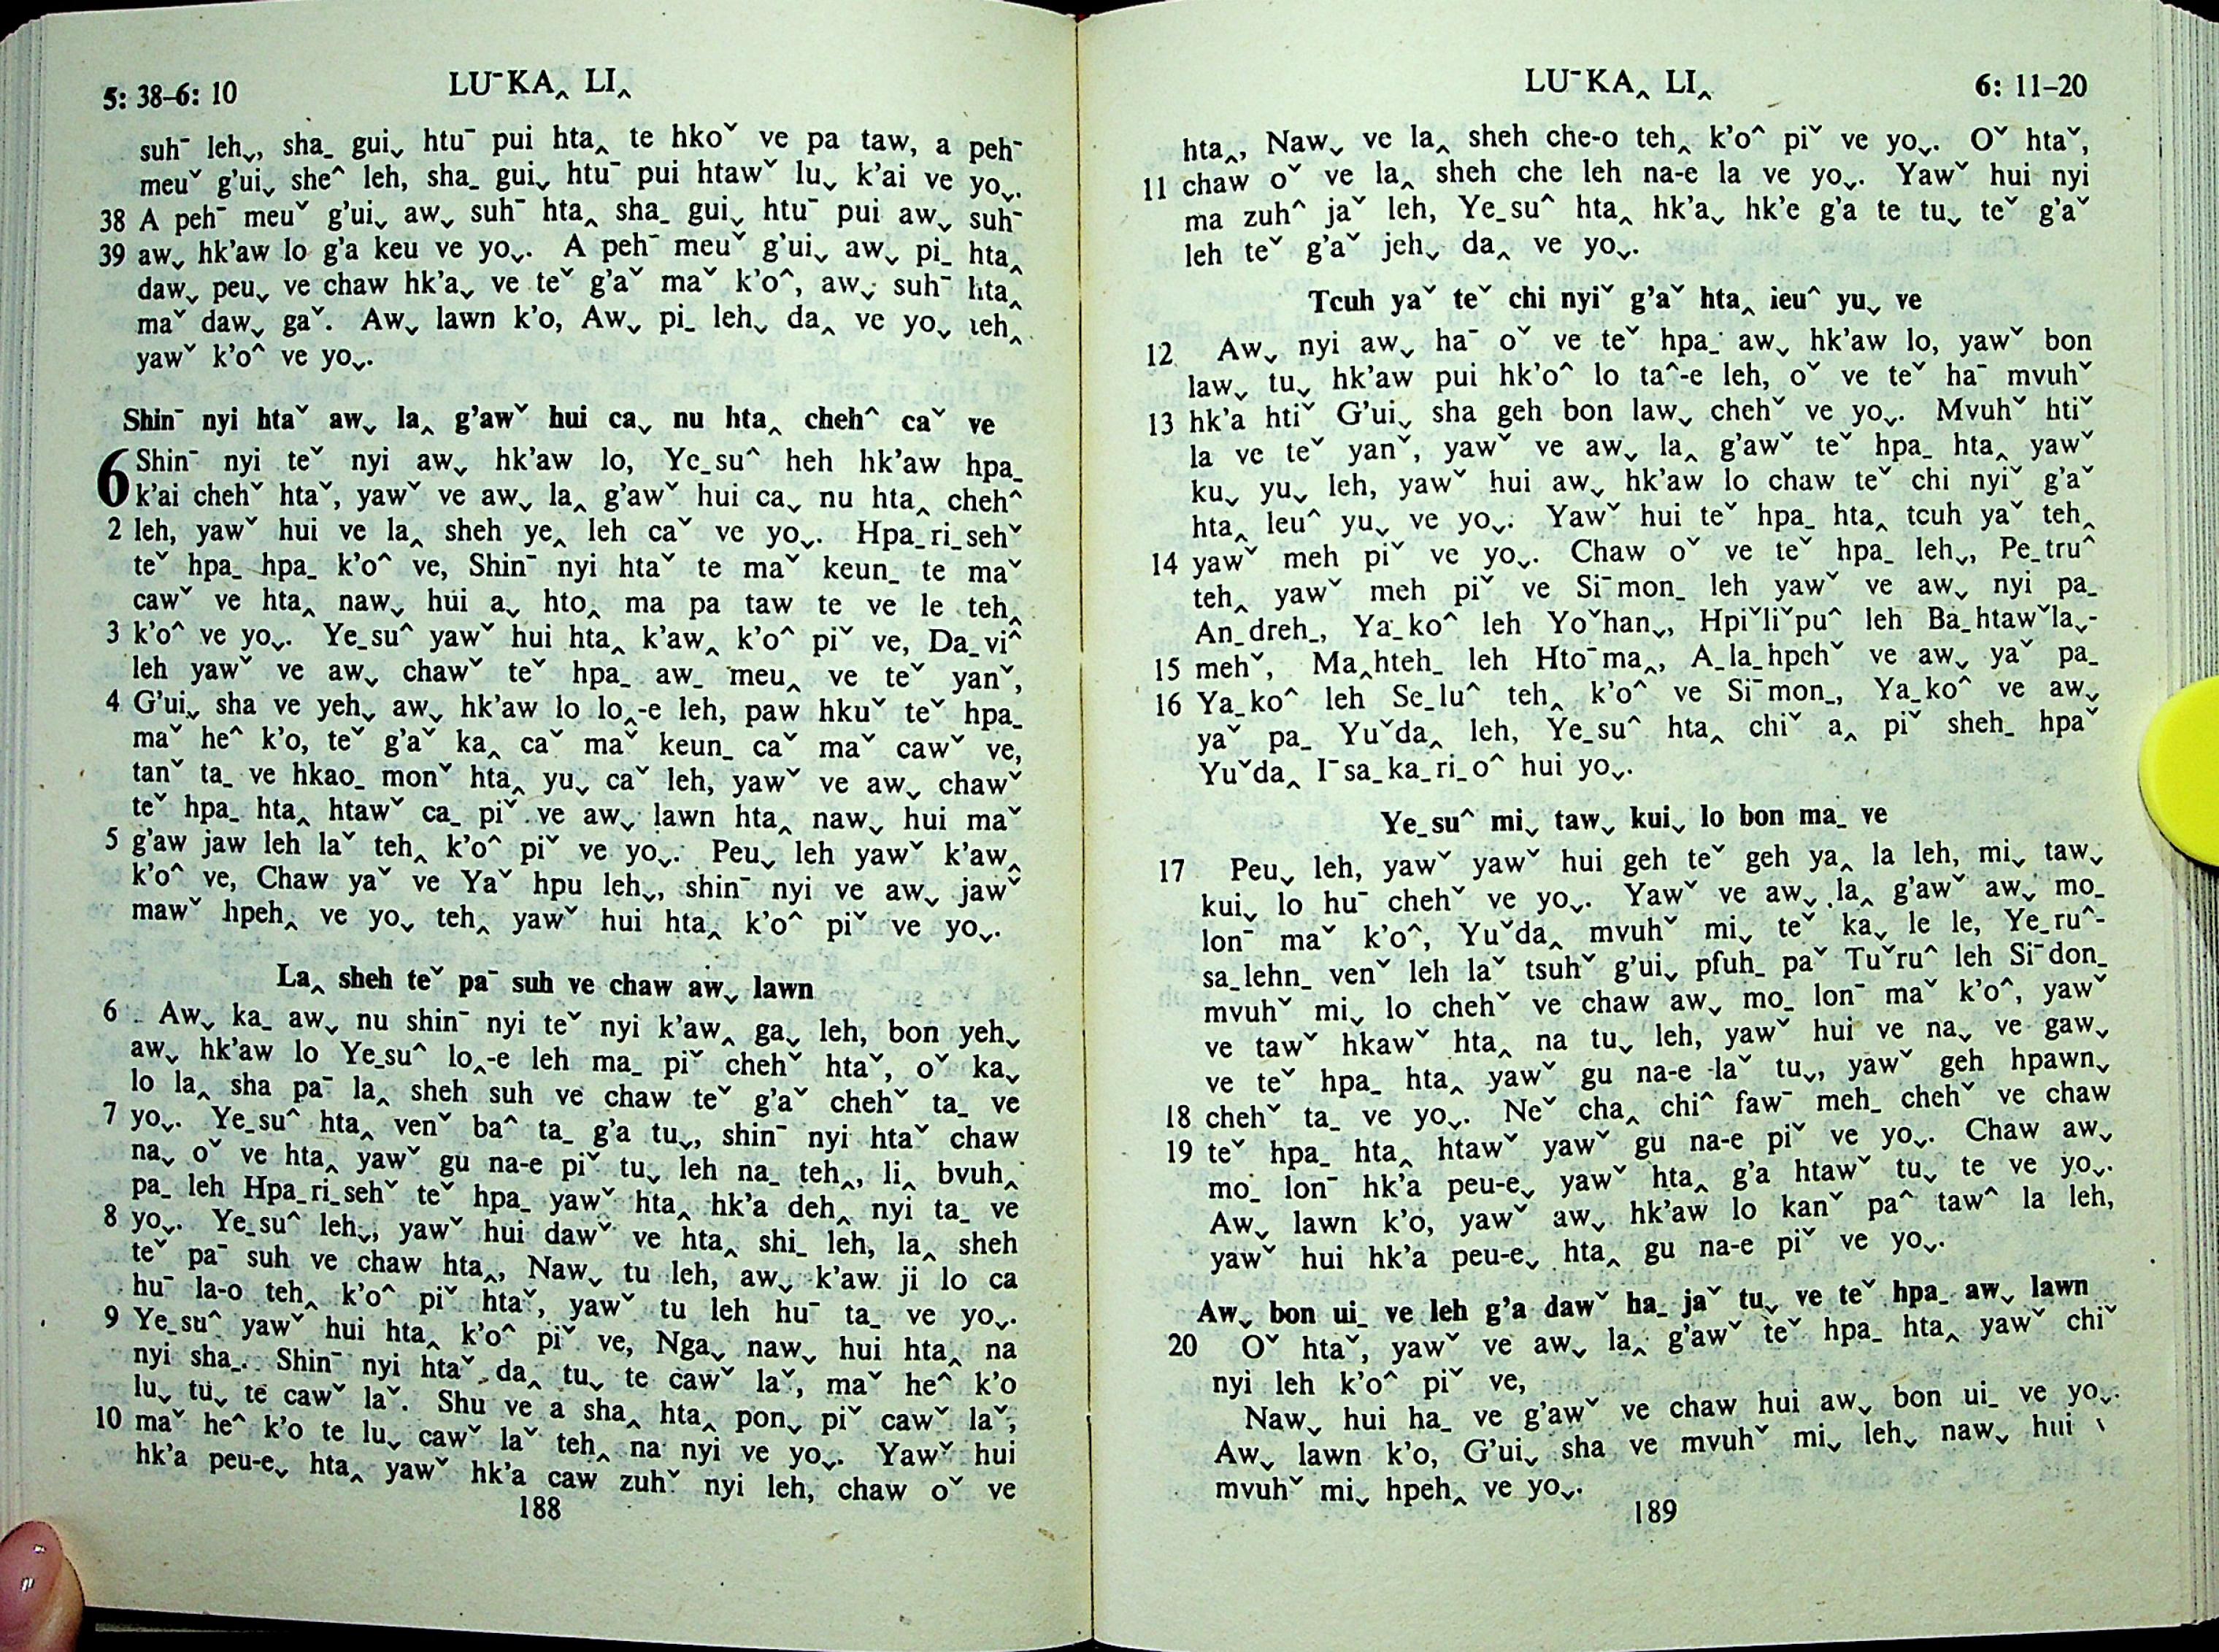 5: 38–6: 10
LUˉKA‸ LI‸
suhˉ leh⌄, sha_ gui⌄ htuˉ pui hta‸ te hkoˇ ve pa taw, a pehˉ
meuˇ g'ui⌄ she^ leh, sha_ gui⌄ htuˉ pui htawˇ lu⌄ k'ai ve yo⌄.
38 A pehˉ meuˇ g'ui⌄ aw⌄ suhˉ hta‸ sha_ gui⌄ htuˉ pui aw⌄ suhˉ
39 aw⌄ hk'aw lo g'a keu ve yo⌄. A pehˉ meuˇ g'ui⌄ aw⌄ pi_ hta‸
daw⌄ peu⌄ ve chaw hk'a⌄ ve teˇ g'aˇ maˇ k'o^, aw⌄ suhˉ hta‸
maˇ daw⌄ gaˇ. Aw⌄ lawn k'o, Aw⌄ pi_ leh⌄ da‸ ve yo⌄ teh‸
yawˇ k'o^ ve yo⌄.
Shinˉ nyi htaˇ aw⌄ la‸ g'awˇ hui ca⌄ nu hta‸ cheh^ caˇ ve
6 Shinˉ nyi teˇ nyi aw⌄ hk'aw lo, Ye_su^ heh hk'aw hpa_
k'ai chehˇ htaˇ, yawˇ ve aw⌄ la‸ g'awˇ hui ca⌄ nu hta‸ cheh^
2 leh, yawˇ hui ve la‸ sheh ye‸ leh caˇ ve yo⌄. Hpa_ri_sehˇ
teˇ hpa_ hpa_ k'o^ ve, Shinˉ nyi htaˇ te maˇ keun_ te maˇ
cawˇ ve hta‸ naw⌄ hui a⌄ hto‸ ma pa taw te ve le teh‸
3 k'o^ ve yo⌄. Ye_su^ yawˇ hui hta‸ k'aw‸ k'o^ piˇ ve, Da_vi^
leh yawˇ ve aw⌄ chawˇ teˇ hpa_ aw_ meu‸ ve teˇ yanˇ,
4 G'ui⌄ sha ve yeh⌄ aw⌄ hk'aw lo lo‸-e leh, paw hkuˇ teˇ hpa_
maˇ he^ k'o, teˇ g'aˇ ka‸ caˇ maˇ keun_ caˇ maˇ cawˇ ve,
tanˇ ta_ ve hkao_ monˇ hta‸ yu⌄ caˇ leh, yawˇ ve aw⌄ chawˇ
teˇ hpa_ hta‸ htawˇ ca_ piˇ ve aw⌄ lawn hta‸ naw⌄ hui maˇ
5 g'aw jaw leh laˇ teh‸ k'o^ piˇ ve yo⌄. Peu⌄ leh yawˇ k'aw‸
k'o^ ve, Chaw yaˇ ve Yaˇ hpu leh⌄, shinˉ nyi ve aw⌄ jawˇ
mawˇ hpeh‸ ve yo⌄ teh‸ yawˇ hui hta‸ k'o^ piˇ ve yo⌄.
La‸ sheh teˇ paˉ suh ve chaw aw⌄ lawn
6 Aw⌄ ka_ aw⌄ nu shinˉ nyi teˇ nyi k'aw‸ ga⌄ leh, bon yeh⌄
aw⌄ hk'aw lo Ye_su^ lo‸-e leh ma_ piˇ chehˇ htaˇ, oˇ ka⌄
lo la‸ sha paˉ la‸ sheh suh ve chaw teˇ g'aˇ chehˇ ta_ ve
7 yo⌄. Ye_su^ hta‸ venˇ ba^ ta_ g'a tu⌄, shinˉ nyi htaˇ chaw
na⌄ oˇ ve hta‸ yawˇ gu na-e piˇ tu⌄ leh na_ teh‸, li‸ bvuh‸
pa_ leh Hpa_ri_sehˇ teˇ hpa_ yawˇ hta‸ hk'a deh‸ nyi ta_ ve
8 yo⌄. Ye_su^ leh⌄, yawˇ hui dawˇ ve hta‸ shi_ leh, la‸ sheh
teˇ paˉ suh ve chaw hta‸, Naw⌄ tu leh, aw⌄ k'aw ji^ lo ca
huˉ la-o teh‸ k'o^ piˇ htaˇ, yawˇ tu leh huˉ ta_ ve yo⌄.
9 Ye_su^ yawˇ hui hta‸ k'o^ piˇ ve, Nga⌄ naw⌄ hui hta‸ na
nyi sha_. Shinˉ nyi htaˇ da‸ tu⌄ te cawˇ laˇ, maˇ he^ k'o
lu⌄ tu⌄ te cawˇ laˇ. Shu ve a sha‸ hta‸ pon⌄ piˇ cawˇ laˇ,
10 maˇ he^ k'o te lu⌄ cawˇ laˇ teh‸ na nyi ve yo⌄. Yawˇ hui
hk'a peu-e⌄ hta‸ yawˇ hk'a caw zuhˇ nyi leh, chaw oˇ ve
188
LUˉKA‸ LI‸
6: 11–20
hta‸, Naw⌄ ve la‸ sheh che-o teh‸ k'o^ piˇ ve yo⌄. Oˇ htaˇ,
11 chaw oˇ ve la‸ sheh che leh na-e la ve yo⌄. Yawˇ hui nyi
ma zuh^ jaˇ leh, Ye_su^ hta‸ hk'a⌄ hk'e g'a te tu⌄ teˇ g'aˇ
leh teˇ g'aˇ jeh⌄ da‸ ve yo⌄.
Tcuh yaˇ teˇ chi nyiˇ g'aˇ hta‸ leu^ yu⌄ ve
12 Aw⌄ nyi aw⌄ haˉ oˇ ve teˇ hpa_ aw⌄ hk'aw lo, yawˇ bon
law⌄ tu⌄ hk'aw pui hk'o^ lo ta^-e leh, oˇ ve teˇ haˉ mvuhˇ
13 hk'a htiˇ G'ui⌄ sha geh bon law⌄ chehˇ ve yo⌄. Mvuhˇ htiˇ
la ve teˇ yanˇ, yawˇ ve aw⌄ la‸ g'awˇ teˇ hpa_ hta‸ yawˇ
ku⌄ yu⌄ leh, yawˇ hui aw⌄ hk'aw lo chaw teˇ chi nyiˇ g'aˇ
hta‸ leu^ yu⌄ ve yo⌄. Yawˇ hui teˇ hpa_ hta‸ tcuh yaˇ teh‸
14 yawˇ meh piˇ ve yo⌄. Chaw oˇ ve teˇ hpa_ leh⌄, Pe_tru^
teh‸ yawˇ meh piˇ ve Siˉmon_ leh yawˇ ve aw⌄ nyi pa_
An_dreh_, Ya_ko^ leh Yoˇhan⌄, Hpiˇliˇpu^ leh Ba_htawˇla⌄-
15 mehˇ, Ma‸hteh_ leh Htoˉma‸, A_la_hpehˇ ve aw⌄ yaˇ pa_
16 Ya_ko^ leh Se_lu^ teh‸ k'o^ ve Siˉmon_, Ya_ko^ ve aw⌄
yaˇ pa_ Yuˇda‸ leh, Ye_su^ hta‸ chiˇ a‸ piˇ sheh_ hpaˇ
Yuˇda‸ Iˉsa_ka_ri_o^ hui yo⌄.
Ye_su^ mi⌄ taw⌄ kui⌄ lo bon ma_ ve
17 Peu⌄ leh, yawˇ yawˇ hui geh teˇ geh ya‸ la leh, mi⌄ taw⌄
kui⌄ lo huˉ chehˇ ve yo⌄. Yawˇ ve aw⌄ la‸ g'awˇ aw⌄ mo_
lonˉ maˇ k'o^, Yuˇda‸ mvuhˇ mi⌄ teˇ ka⌄ le le, Ye_ru^-
sa_lehn_ venˇ leh laˇ tsuhˇ g'ui⌄ pfuh_ paˇ Tuˇru^ leh Siˉdon_
mvuhˇ mi⌄ lo chehˇ ve chaw aw⌄ mo_ lonˉ maˇ k'o^, yawˇ
ve tawˇ hkawˇ hta‸ na tu⌄ leh, yawˇ hui ve na⌄ ve gaw⌄
ve teˇ hpa_ hta‸ yawˇ gu na-e laˇ tu⌄, yawˇ geh hpawn⌄
18 chehˇ ta_ ve yo⌄. Neˇ cha‸ chi^ fawˉ meh_ chehˇ ve chaw
19 teˇ hpa_ hta‸ htawˇ yawˇ gu na-e piˇ ve yo⌄. Chaw aw⌄
mo_ lonˉ hk'a peu-e⌄ yawˇ hta‸ g'a htawˇ tu⌄ te ve yo⌄.
Aw⌄ lawn k'o, yawˇ aw⌄ hk'aw lo kanˇ pa^ taw^ la leh,
yawˇ hui hk'a peu-e⌄ hta‸ gu na-e piˇ ve yo⌄.
Aw⌄ bon ui_ ve leh g'a dawˇ ha_ jaˇ tu⌄ ve teˇ hpa_ aw⌄ lawn
20 Oˇ htaˇ, yawˇ ve aw⌄ la‸ g'awˇ teˇ hpa_ hta‸ yawˇ chiˇ
nyi leh k'o^ piˇ ve,
Naw⌄ hui ha_ ve g'awˇ ve chaw hui aw⌄ bon ui_ ve yo⌄.
Aw⌄ lawn k'o, G'ui⌄ sha ve mvuhˇ mi⌄ leh⌄ naw⌄ hui
mvuhˇ mi⌄ hpeh‸ ve yo⌄.
189